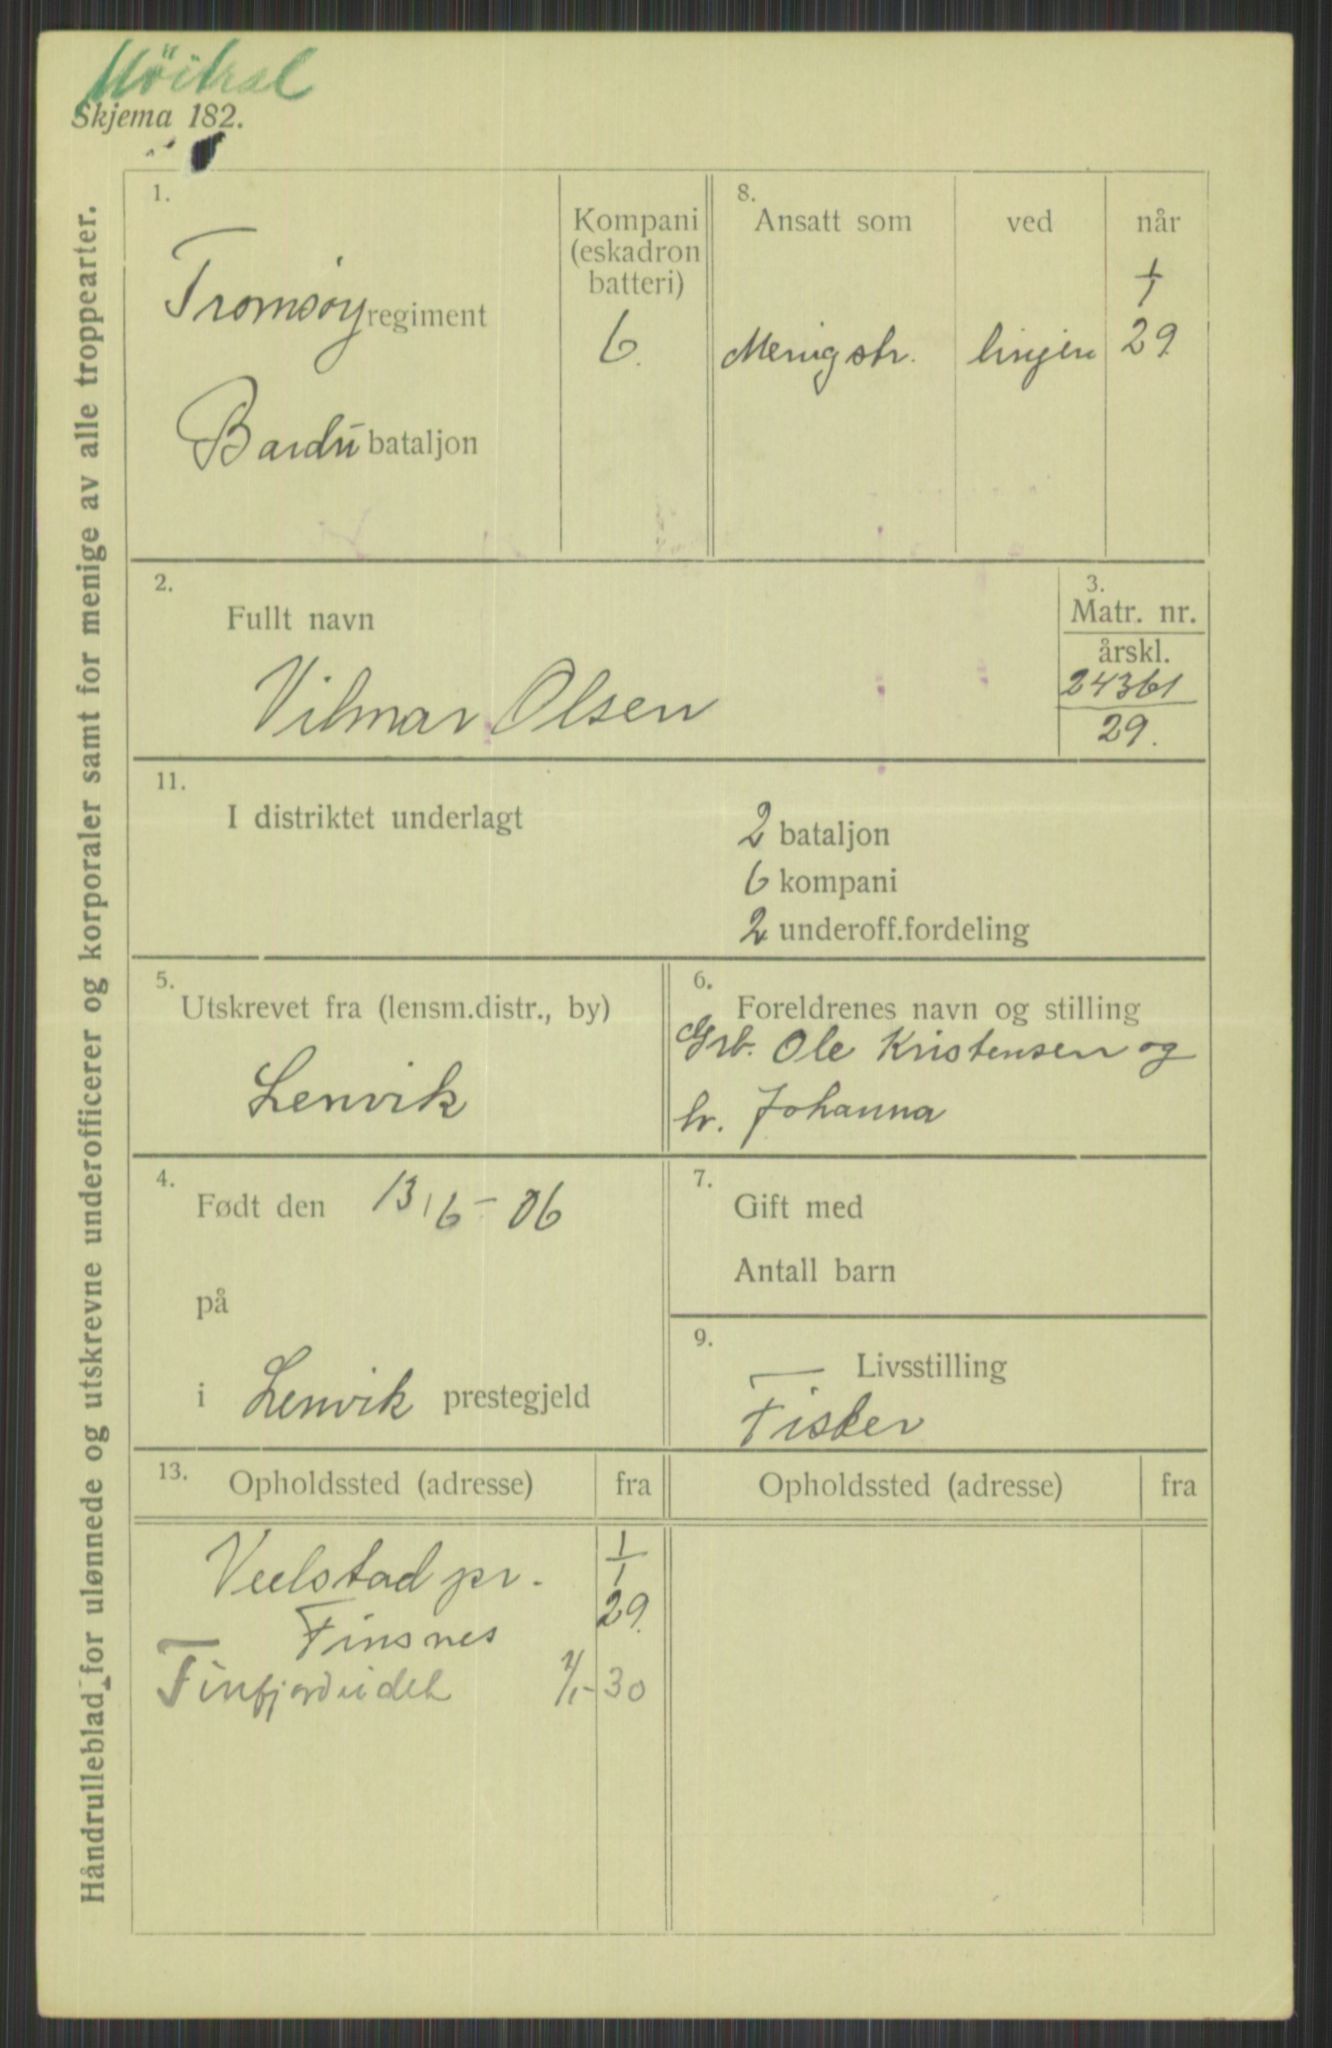 Möitral
Skjema 182.
Håndrulleblad for ulønnede og utskrevne underofficerer og korporaler samt for menige av alle troppearter.
1.
Tromsøy regiment
Bardu bataljon
Kompani
(eskadron
batteri)
6.
8.
Ansatt som
Menig str.
ved
linjen
når
1/1
29.
2.
Fullt navn
Vilmar Olsen
3.
Matr. nr.
årskl.
24361
29.
11.
I distriktet underlagt
2 bataljon
6 kompani
2 underoff.fordeling
5.
Utskrevet fra (lensm.distr., by)
Lenvik
6.
Foreldrenes navn og stilling
Grb. Ole Kristensen og
h. Johanna
4.
Født den 13/6 - 06
på
i Lenvik prestegjeld
7.
Gift med
Antall barn
9.
Livsstilling
Fisker
13.
Opholdssted (adresse) fra
Opholdssted (adresse) fra
Veelstad pr. 1/1
Finsnes 29.
Finfjordeidet 1/1-30